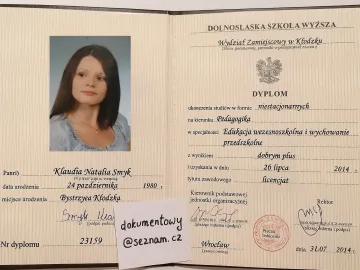 Pan(i) Klaudia Natalia Smyk
data urodzenia 24 października 1980 r.
miejsce urodzenia Bystrzyca Kłodzka
Nr dyplomu 23159
dokumentowy
@seznam.cz
DOLNOŚLĄSKA SZKOŁA WYŻSZA
Wydział Zamiejscowy w Kłodzku
DYPLOM
ukończenia studiów w formie niestacjonarnych
na kierunku Pedagogika
w specjalności Edukacja wczesnoszkolna i wychowanie
przedszkolne
z wynikiem dobrym plus
i uzyskania w dniu 26 lipca 2014 r.
tytułu zawodowego licencjat
Kierownik podstawowej
jednostki organizacyjnej
Rektor
Wrocław
dnia 31.07 2014 r.